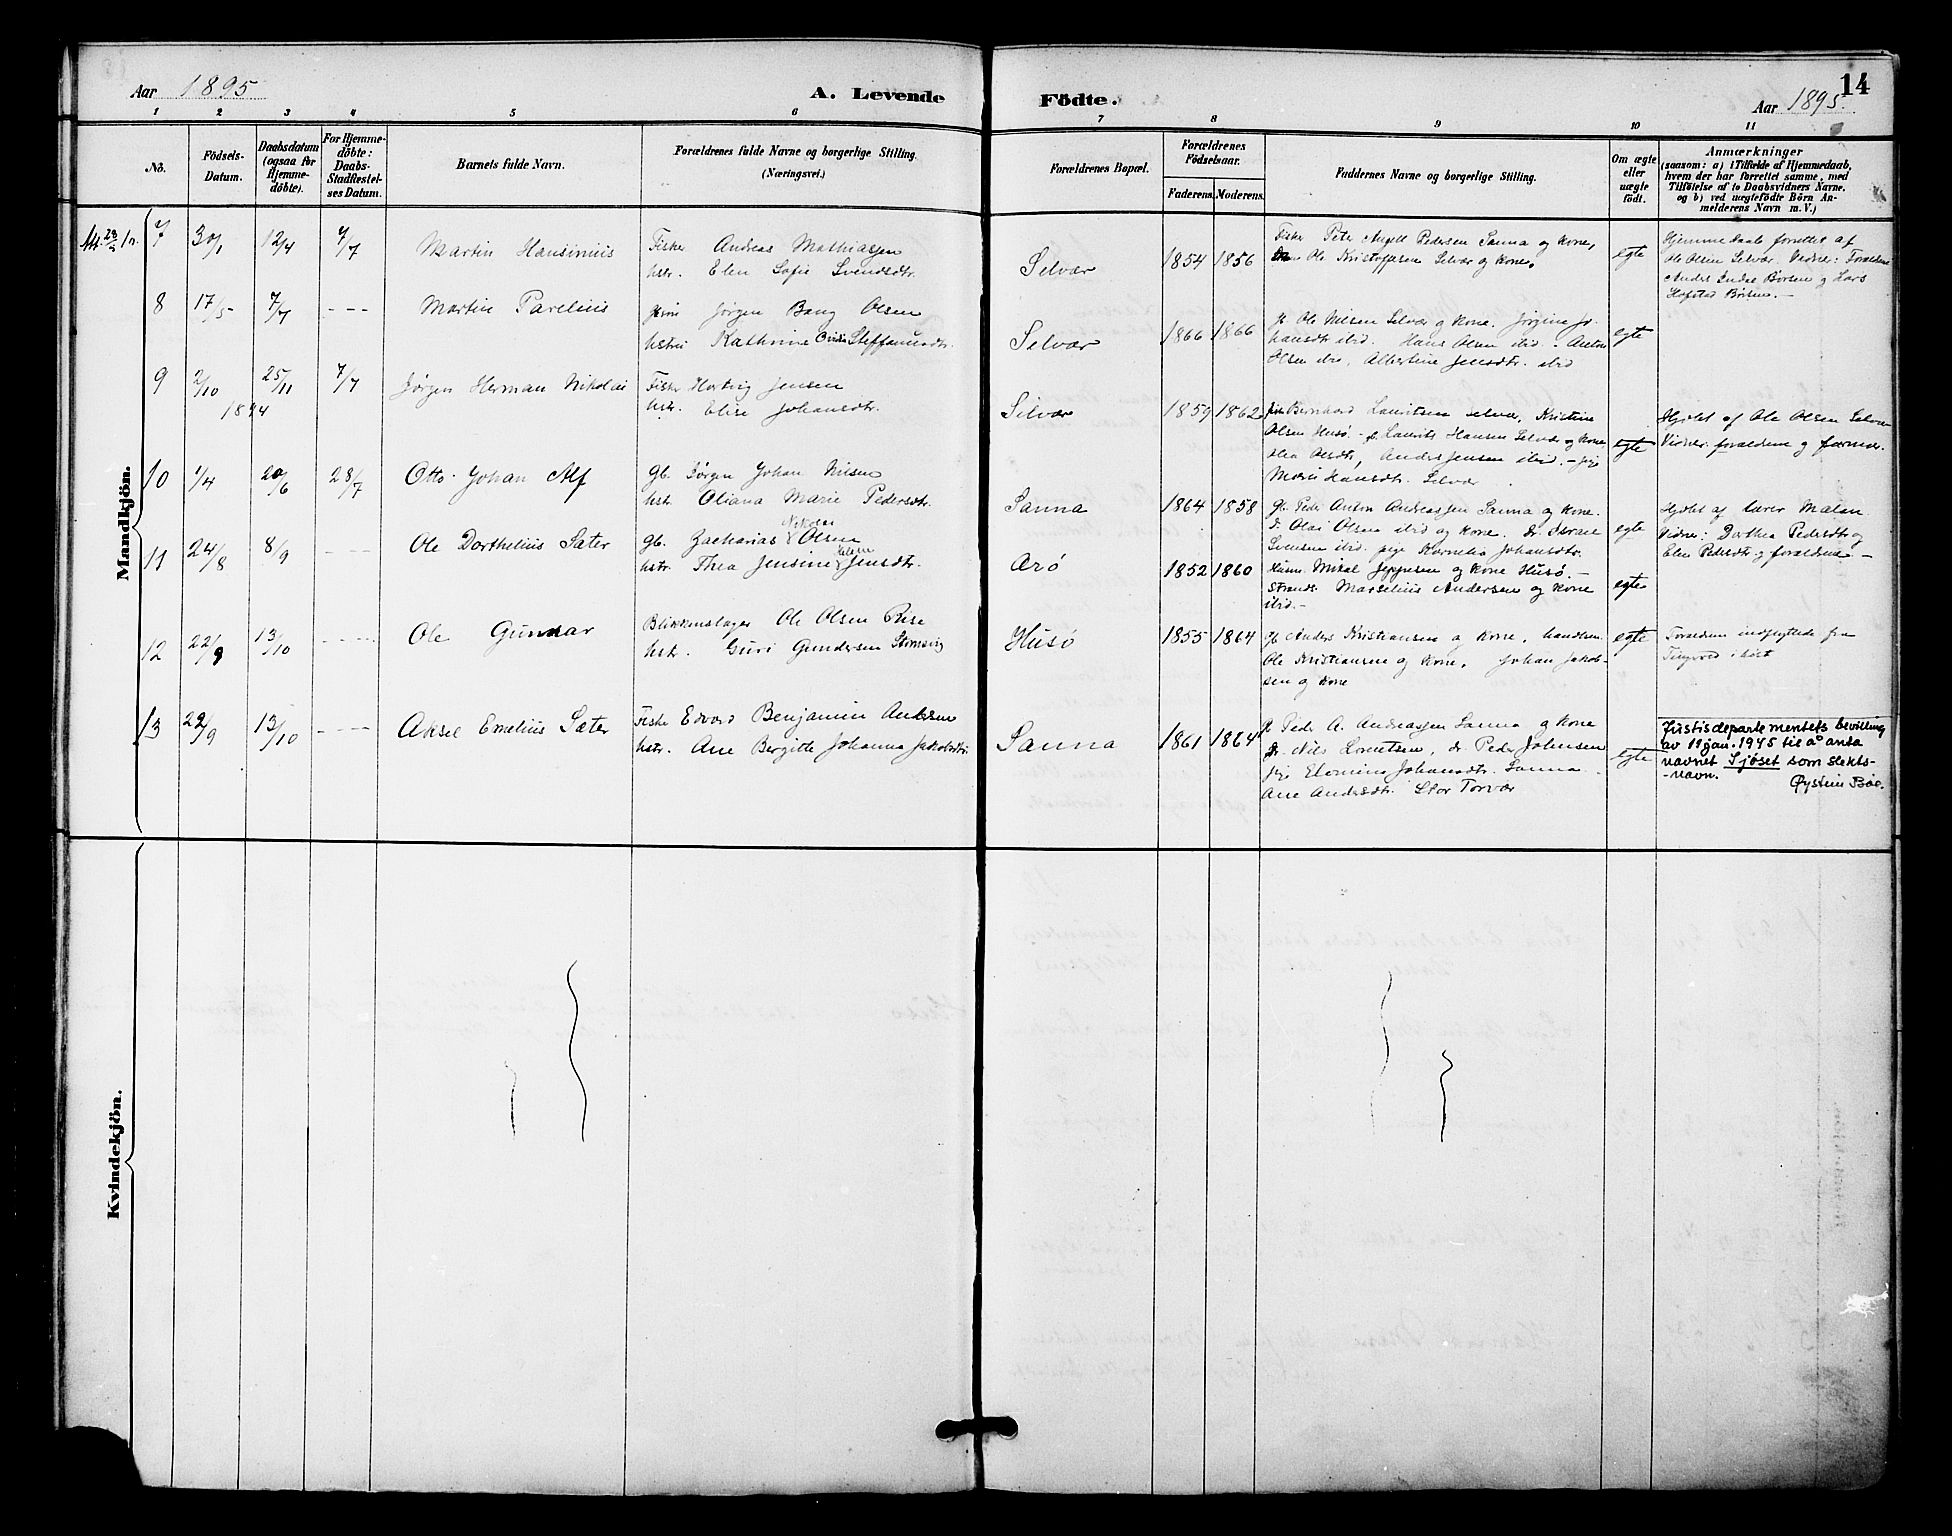 Aar 1895
A. Levende
Födte.
14
Aar 1895.
1 2 3 4 5 6 7 8 9 10 11
No.
Födsels-
Datum.
Daabsdatum
(ogsaa för
Hjemme-
döbte).
For Hjemme-
döbte:
Daabs-
Stadfæstel-
ses Datum.
Barnets fulde Navn.
Forældrenes fulde Navne og borgerlige Stilling.
(Næringsvei.)
Forældrenes Bopæl.
Forældrenes
Födselsaar.
Faderens. Moderens.
Faddernes Navne og borgerlige Stilling.
Om ægte
eller
uægte
födt.
Anmærkninger
(saasom: a) i Tilfælde af Hjemmedaab,
hvem der har forrettet samme, med
Tilföielse af to Daabsvidners Navne.
og b) ved uægtefödte Börn An-
melderens Navn m. V.)
Mandkjön.
7 30/1 12/4 7/7 Martin Hansinius
Fisker Andreas Mathiassen
hstr. Elen Sofie Svendsdtr.
Selvær 1854 1856
Fisker Peter Angell Pedersen Sanna og kone,
Ole Kristoffersen Selvær og kone.
egte
Hjemmedaab forrettet af
Ole Olsen Selvær. Vidner: Forældrene
Anders Indal Börsen og Lars
Hofstad Börsen. -
8 17/5 7/7 - - - Martin Parelius
Jörgen Bang Olsen
hstru Kathrine Steffensendtr.
Selvær 1866 1866
Ole Nilsen Selvær og kone. Jörgine Jo-
hansdtr ibid. Hans Olsen ibid. Anton
Olsen ibid, Albertine Jensdtr. ibid
egte
9 2/10 25/11 7/7 Jörgen Herman Nikolai
1894
Fisker Hartvig Jensen
hstr. Elise Johansdtr.
Selvær 1859 1862
Bernhard Lauritsen Selvær, Kristine
Olsen Husö - Laurits Hansen Selvær og kone
Olsdtr, Anders Jensen ibid. - pige
Marie Hansdtr. Selvær.
egte
Hjdbt af Ole Olsen Selvær
Vidner: forældrene og farmor.
10 1/4 20/6 28/7 Otto Johan Alf
gb. Jörgen Johan Nilsen
hstr. Oliana Marie Pedersdtr.
Sanna 1864 1858
gb. Peder Anton Andreassen Sanna og kone.
Olai Olsen ibid og kone. Dr. Israel
Svensen ibid. pige Kornelia Johansdtr.
egte
Hjdbt af lærer Malan
Vidner: Dorthea Pedersdtr og
Elen Pedersdtr og forældrene -
11 24/8 8/9 - - - Ole Dorthelius Sæter
Nikolai
gb. Zacharias Olsen
hstr. Thea Jensine Jensdtr.
Arö 1852 1860
Husm. Mikal Jeppesen og kone Husö. -
Strands. Marselius Andersen og kone
ibid. -
egte
12 22/9 13/10 - - - Ole Gunnar
Blikkenslager Ole Olsen Rise
hstr. Guri Gundersen
Husö 1855 1864
Anders Kristiansen og kone, handlsm.
Ole Kristiansen og kone, Johan Jakob-
sen og kone
egte
Forældrene indflyttede fra
Tingvold i höst
13 29/9 13/10 - - - Aksel Emelius Sæter
Fisker Edvard Benjamin Andersen
hstr. Ane Bergitte Johanna Jakobsdtr.
Sanna 1861 1864
Peder A. Andreassen Sanna og kone
Dr. Nils Lorentsen, dr. Peder Johnsen
pige Elomine Johansdtr. Sanna.
Ane Andersdtr. Stor Torvær
egte
Justisdepartementets bevilling
av 11 jan. 1945 til å anta
navnet Sjøset som slekts-
-navn.
Øystein Bøe.
Kvindekjön.